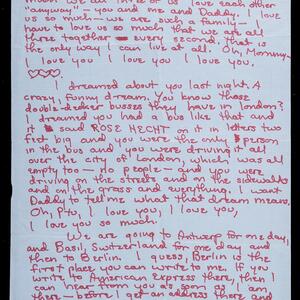 about we all three of us love each other
"anyway" — you and me and Daddy. I love
us so much — we are such a family —
have to love us so much that we are all
there together — every second. That is
the only way I can live at all. Oh, Mommy
I love you I love you I love you.
I dreamed about you last night. A
crazy, funny dream. You know those
double-decker busses they have in London?
I dreamed you had a bus like that and
it said ROSE HECHT on it in letters two
feet big and you were the only person
in the bus and you were driving it all
over the city of London, which was all
empty too — no people — and you were
driving on the streets and on the sidewalks
and on the grass and everything. I want
Daddy to tell me what that dream means.
Oh, I love you, I love you,
I love you so much.
We are going to Antwerp for one day,
and Basil, Switzerland for one day and
then to Berlin. I guess, Berlin is the
first place you can write to me. If you
write to American Express there, then I
can hear from you as soon as I am
there — before I get an address there and